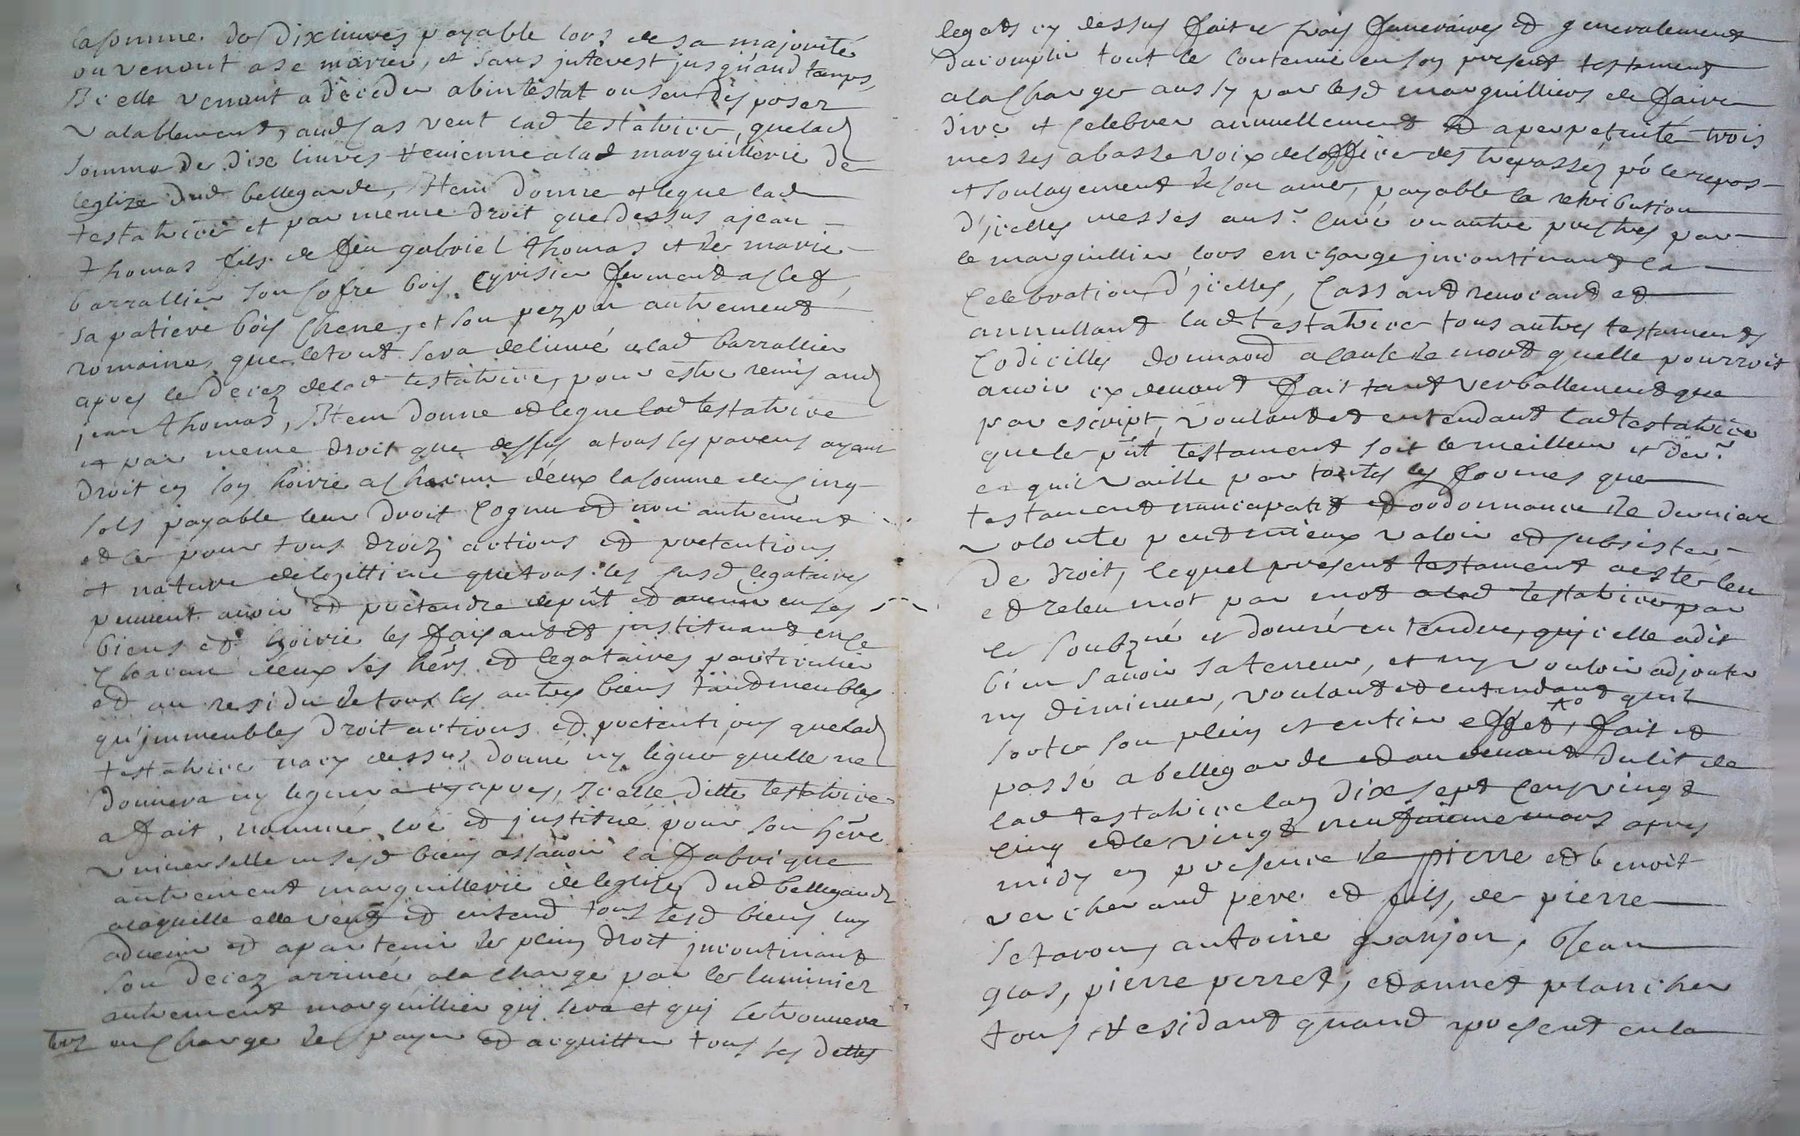 la somme de dix livres payable lors de sa majorité
ou venant a se marier, et sans jnterest jusqu'aud temps,
Si elle venant a déceder abintestat ou sen disposer
valablement, aud cas veut lad testatrice, quelad
somme de dix livres revienne alad marguillerie de
leglize dud bellegarde, Item donne et legue lad
testatrice et par meme droit que dessus a jean
thomas fils de feu gabriel thomas et de marie
barrallier son cofre bois cyrisier fermant a clef,
sa patiere bois chene, et son pezon autrement
romaine, que letout sera delivré alad barrallier
apres le decez delad testatrice, pour estre remis aud
jean thomas, Item donne et legue lad testatrice
et par meme droit que dessus a tous les parens ayant
droit en son hoirie a chacun deux la somme de cinq
sols payable leur droit cognu et non autrement
et ce pour tous droitz actions et pretentions
et nature delegittime que tous les susd legataires
peuvent avoir et pretendre depnt et avenir en ses
biens et hoirie les faisant et jnstituant en ce
chacun deux ses hers et legataires particulier
et au residu de tous les autres biens tant meubles
qu'jmmeubles droit actions et pretentions quelad
testatrice na cy dessus donné ny legué quelle ne
donnera ny leguera cy apres, Icelle ditte testatrice
a fait, nommé, creé et jnstitué pour son here
universelle en sesd biens assavoir la fabrique
autrement marguillerie de leglize dud bellegarde
alaquelle elle veut et entend tous sesd biens luy
advenir et apartenir de plein droit jncontinant
son decez arrivée, ala charge par le luminier
autrement marguillier qui sera et qui se trouvera
en charge de payer et acquitter tous ses dettes
legats cy dessus faits frais funeraires et generalement
dacomplir tout le contenu en son present testament
ala charge aussy par lesd marguilliers de faire
dire et celebrer annuellement et a perpetuité trois
messes abasse voix deloffice des trepassez pr le repos
et soulagement de son ame, payable la retribution
d'jcelles messes aux sr curé ou autre prestres par
le marguillier lors en charge jncontinant la
celebration d'jcelles, cassant revocant et
annullant lad testatrice tous autres testaments
codicilles donnaond a cause de mort quelle pourroit
avoir cy devant fait tant verballement que
par escript, voulant et entendant lad testatrice
que le pnt testament soit le meilleur et der
et quil vaille par toutes les formes que
testament nuncupatif et ordonnance de derniere
volonté peut mieux valoir et subsister
de droit, lequel present testament a esté leu
et releu mot par mot alad testatrice par
le soubzné et donné entendre, qu'jcelle a dit
bien scavoir sa teneur, et ny vouloir adjouter
ny diminuer, voulant et entendant quil
sorte son plein et entier effet, fait et
passé a bellegarde et au devant dulit de
lad testatrice lan dix sept cens vingt
cinq et le vingt neufvieme mars apres
midy en presence de pierre et benoit
vercherand pere et fils, de pierre
antoine granjon, Jean
gras, pierre perret, et annet plancher
tous residant quand present en la